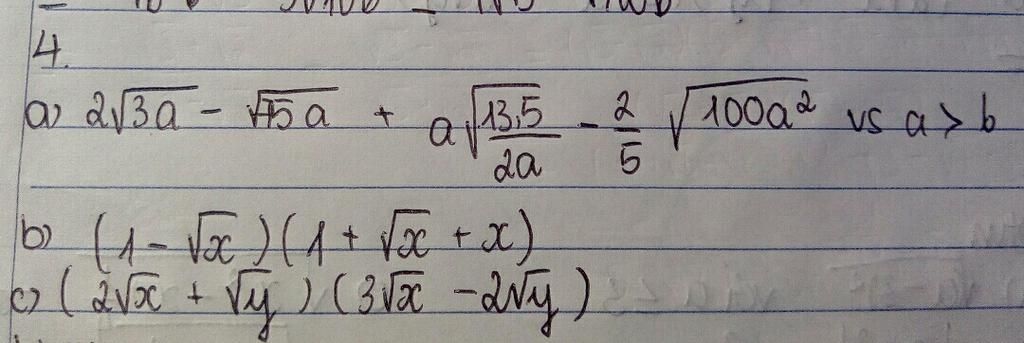 4.
a) 2√3a - √75a + a√13,5/2a - 2/5 √100a² vs a > b
b) (1 - √x)(1 + √x + x)
c) (2√x + √y)(3√x - 2√y)